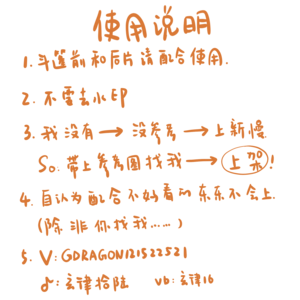 使用说明
1. 斗篷前和后片请配合使用.
2. 不需去水印
3. 我没有→没参考→上新慢
So. 带上参考图找我→上架!
4. 自认为配合不好看的东东不会上.
(除非你找我……)
5. V: GDRAGON121522521
: 玄律拾陆 vb: 玄律16